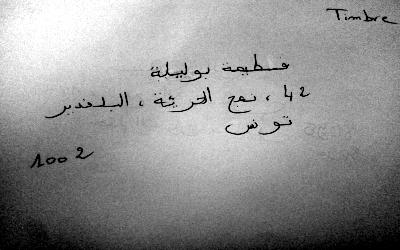 Timbre
فطيمة بوليلة
42 ، نهج الحرية ، البلفدير
تونس
1002